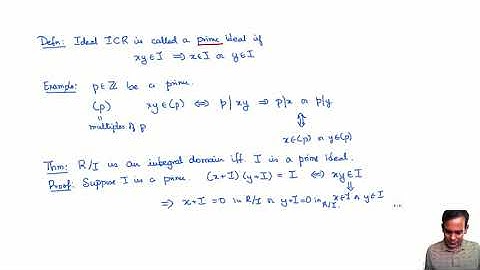 Defn: Ideal I⊂R is called a prime ideal if
xy∈I ⇒ x∈I or y∈I
Example: p∈ℤ be a prime.
(p) xy∈(p) ⇔ p|xy ⇒ p|x or p|y
=
multiples of p
⇕
x∈(p) or y∈(p)
Thm: R/I is an integral domain iff. I is a prime ideal.
Proof: Suppose I is a prime. (x+I)(y+I) = I ⇔ xy∈I
⇓
x∈I or y∈I
⇒ x+I = 0 in R/I or y+I = 0 in R/I. ...